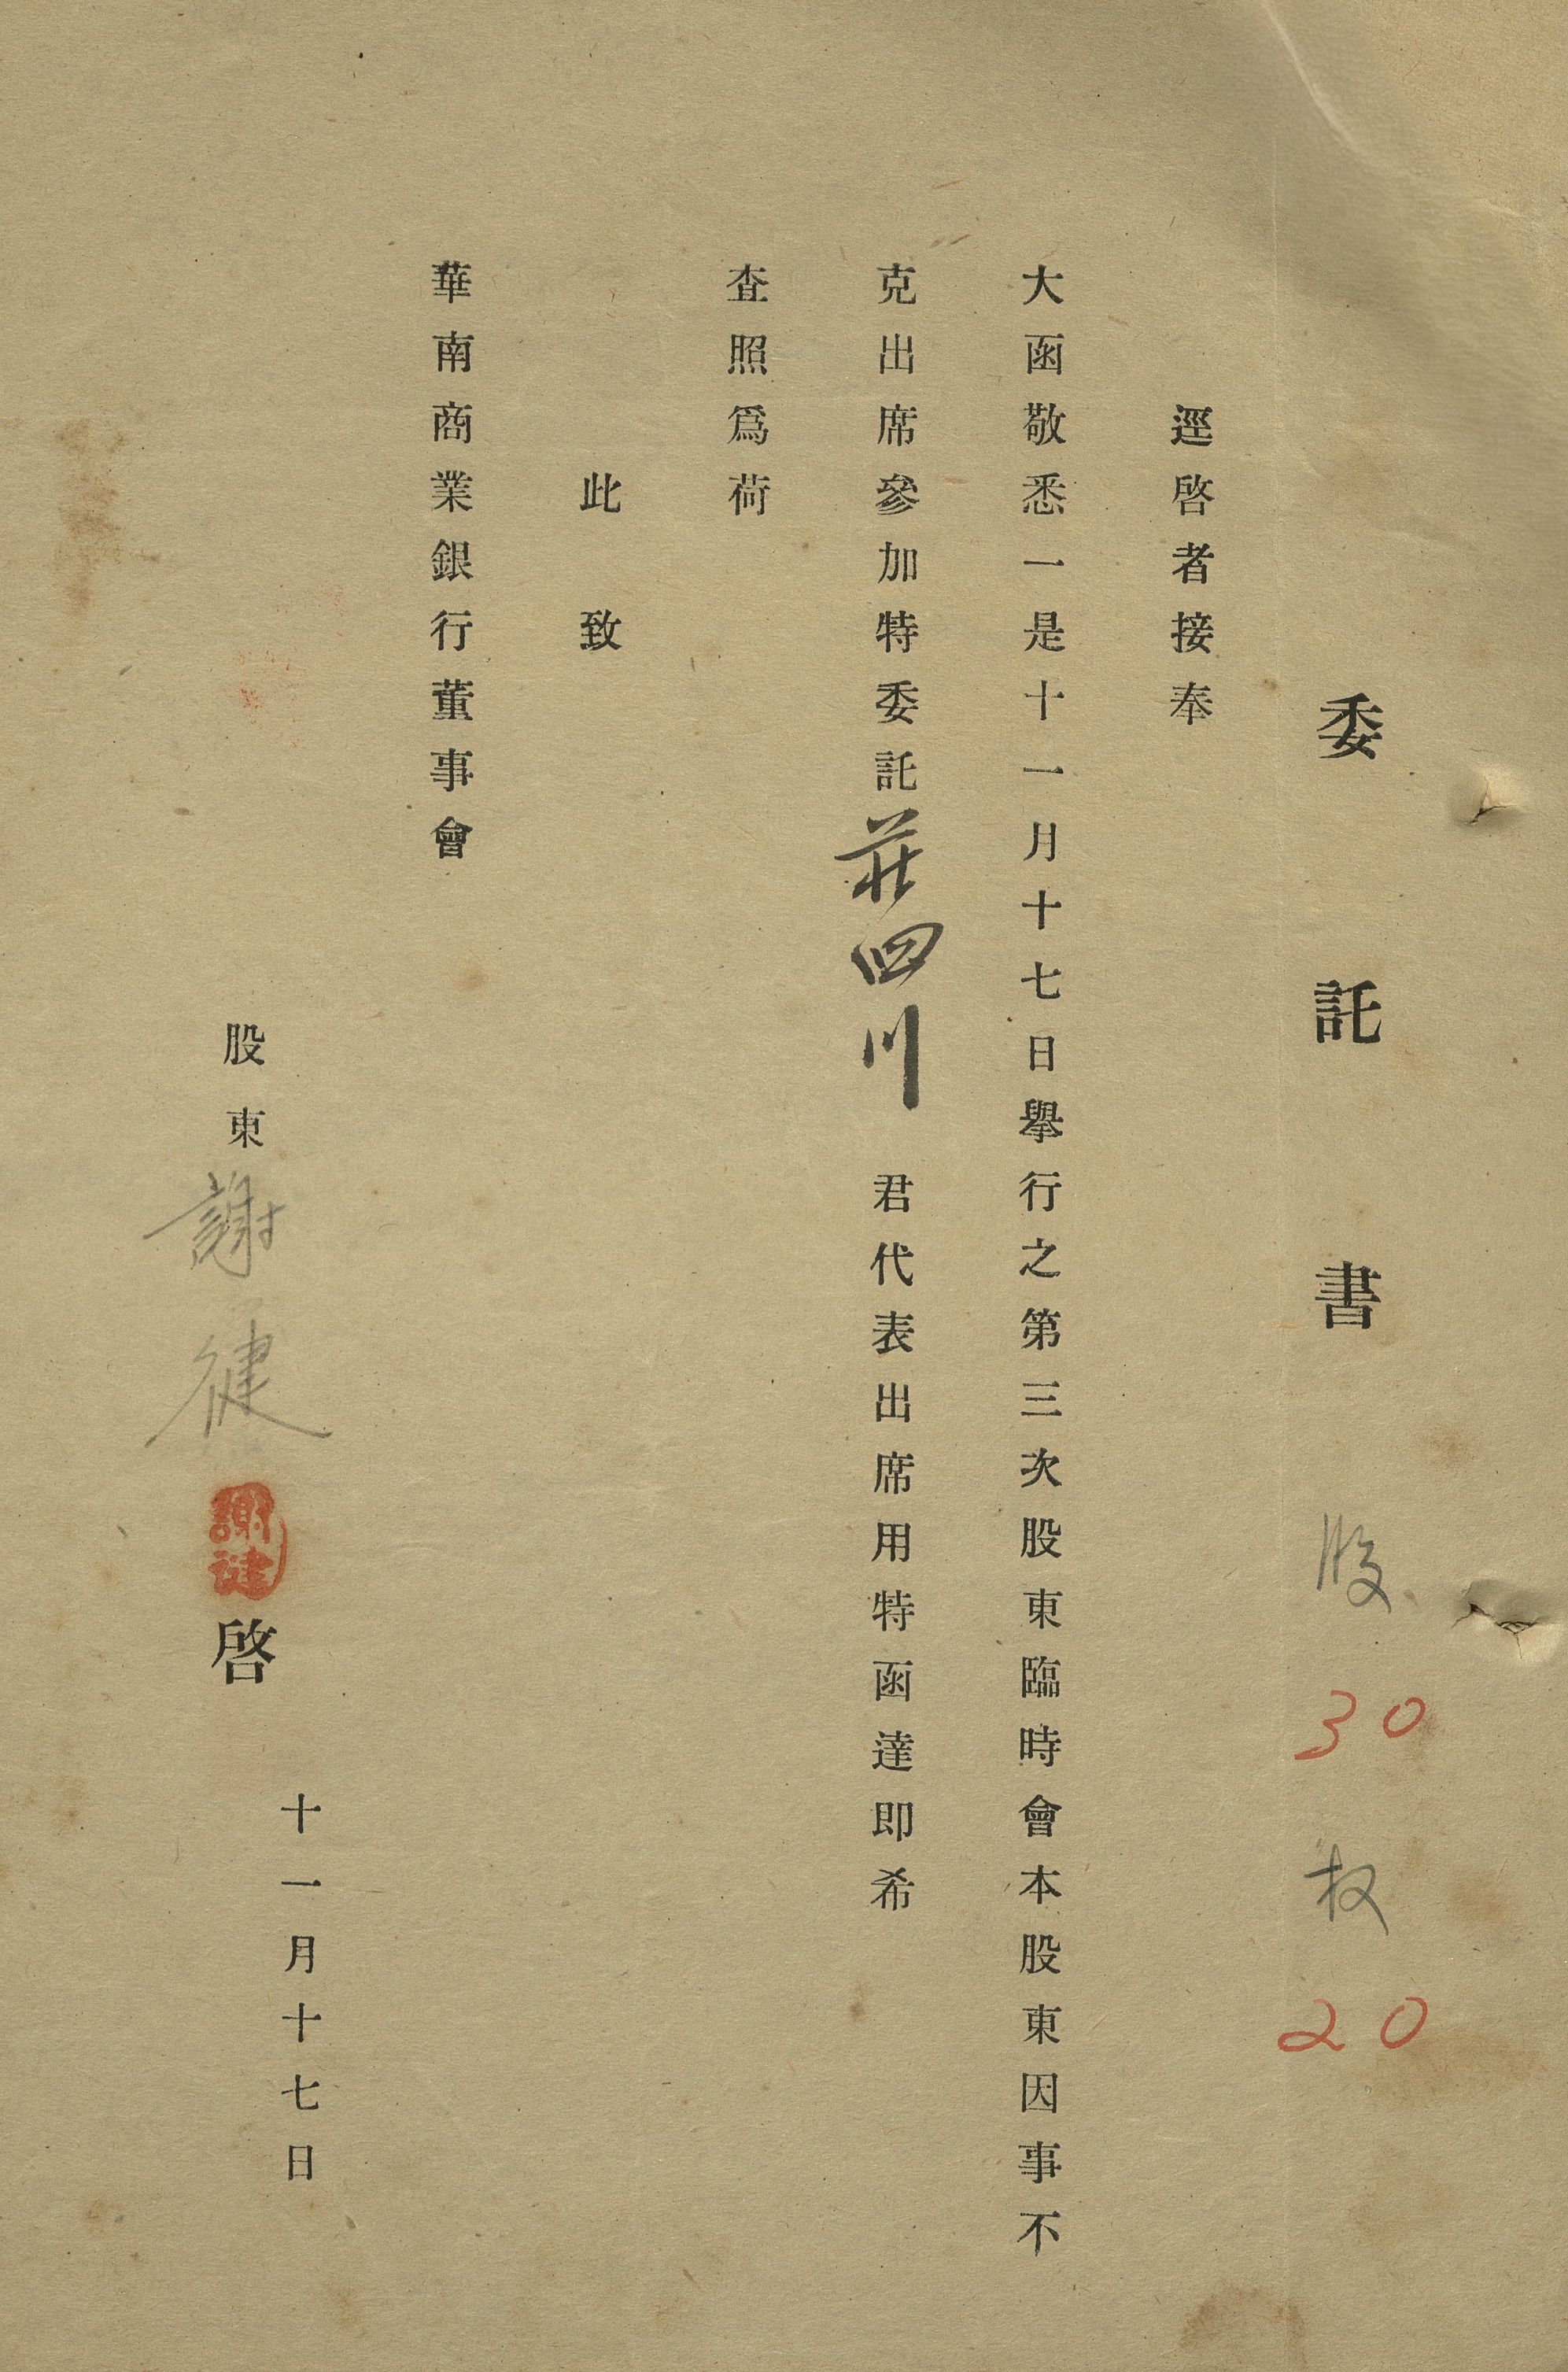 委託書 股 30 权 20
逕啓者接奉
大函敬悉一是十一月十七日舉行之第三次股東臨時會本股東因事不
克出席參加特委託莊四川 君代表出席用特函達即希
査照爲荷
此致
華南商業銀行董事會
股東謝健 謝健 啓
十一月十七日